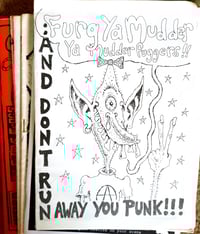 Furg Ya Mudder
Ya Mudder Fuggers!!
:AND DONT RUN
AWAY YOU PUNK!!!